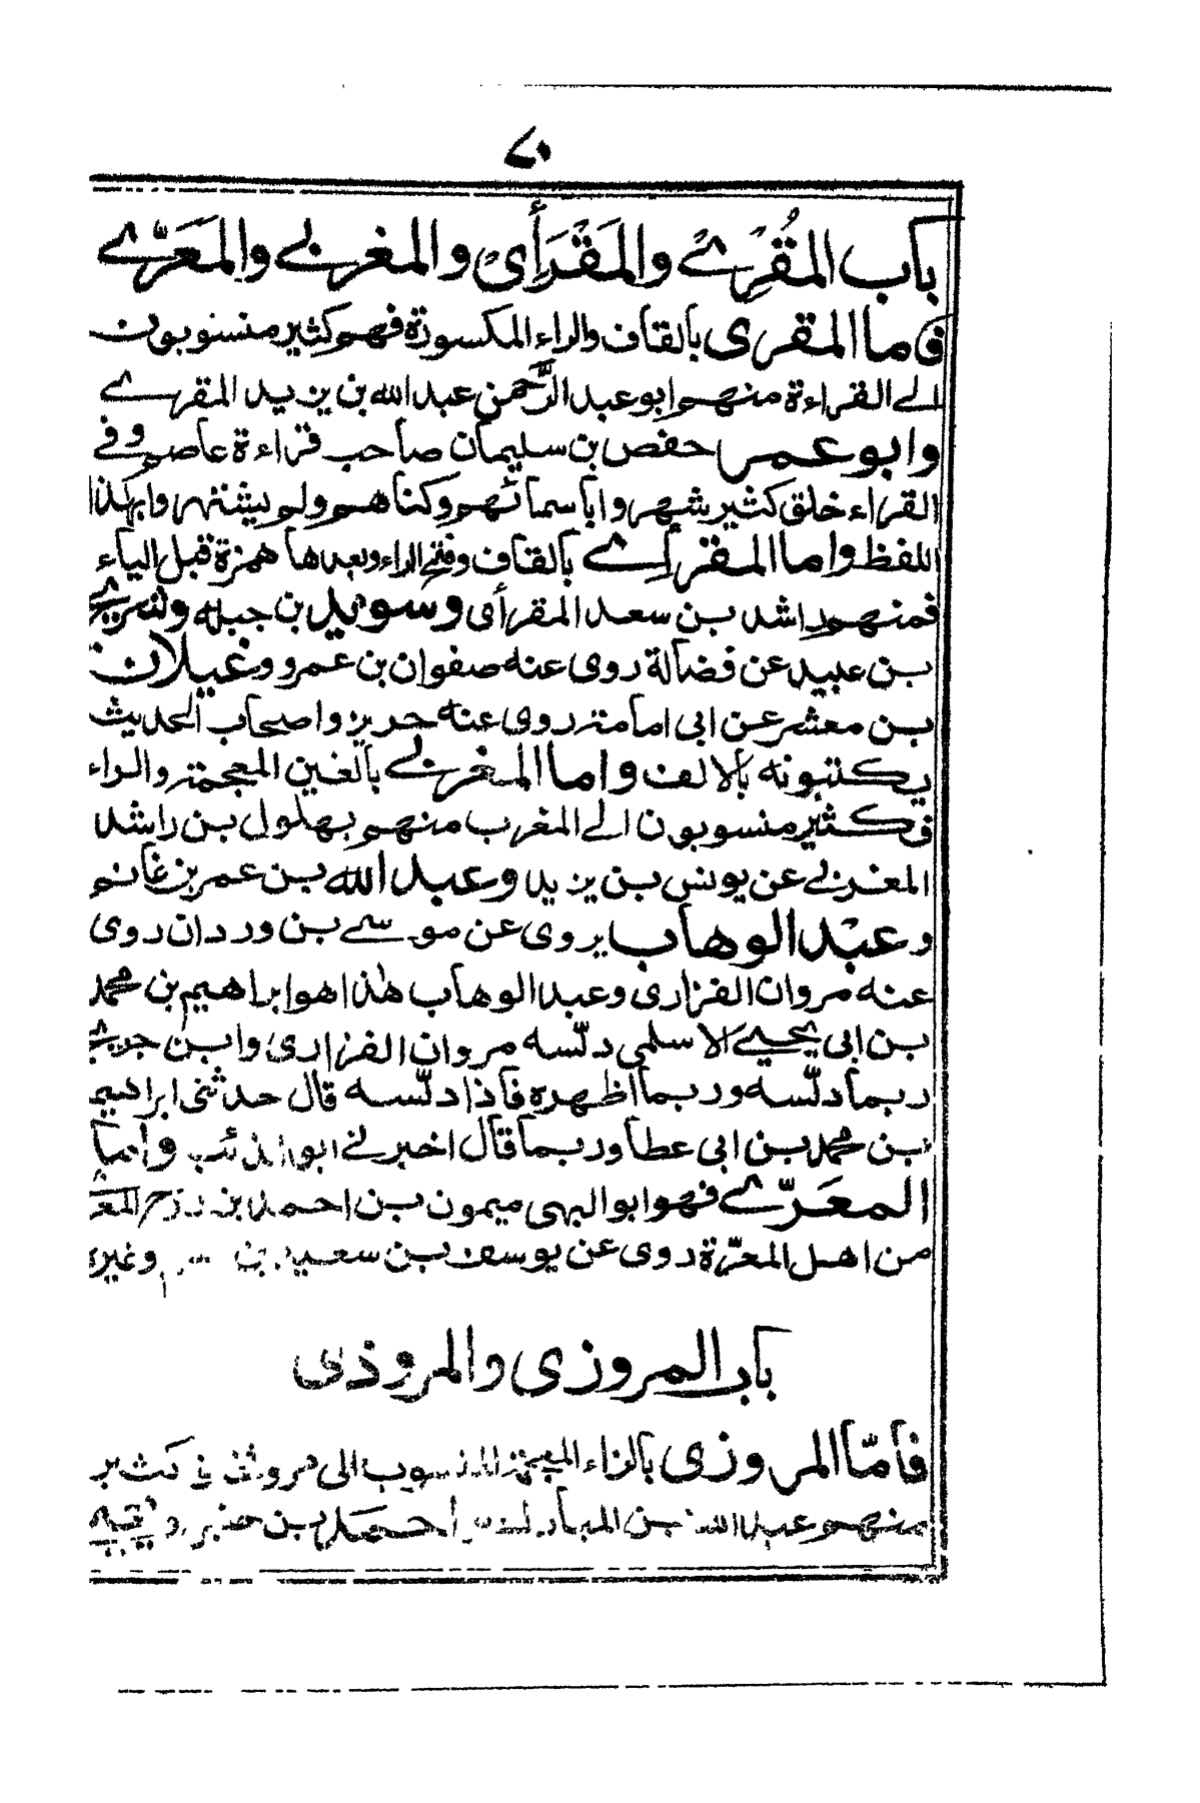 ٧٠
باب المُقْرِئ والمَقْرَأى والمغربي والمَعَرّي
فاما المقرى بالقاف والراء المكسورة فهم كثير منسوبون
الى القراءة منهم ابو عبد الرّحمن عبد الله بن يزيد المقرى
وابو عمر حفص بن سليمان صاحب قراءة عاصم وفي
القراء خلق كثير شهروا باسمائهم وكناهم ولم يشتهروا بهذا
اللفظ واما المقرأى بالقاف وفتح الراء وبعدها همزة قبل الياء
فمنهم راشد بن سعد المقرأى وسويد بن جبلة وشريح
بن عبيد عن فضالة روى عنه صفوان بن عمرو وغيلان
بن معشر عن ابى امامة روى عنه حريز واصحاب الحديث
يكتبونه بالالف واما المغربي بالغين المعجمة والراء
فكثير منسوبون الى المغرب منهم بهلول بن راشد
المغربي عن يونس بن يزيد وعبد الله بن عمر بن غانم
وعبد الوهاب يروى عن موسى بن وردان روى
عنه مروان الفزارى وعبد الوهاب هذا هو ابراهيم بن محمد
بن ابى يحيى الاسلمى دلّسه مروان الفزارى وابن جريج
ربما دلّسه وربما اظهره فاذا دلّسه قال حدثنى ابراهيم
بن محمد بن ابى عطا وربما قال اخبرني ابو الذئب واما
المعَرّي فهو ابو البهى ميمون بن احمد بن روح المعر
من اهل المعرّة روى عن يوسف بن سعيد بن وغيره
باب المروزى والمروذى
فامّا المروزى بالزاء المعجمة المنسوب الى مرو فى كثير
منهم عبد الله بن المبارك احمد بن حنبل